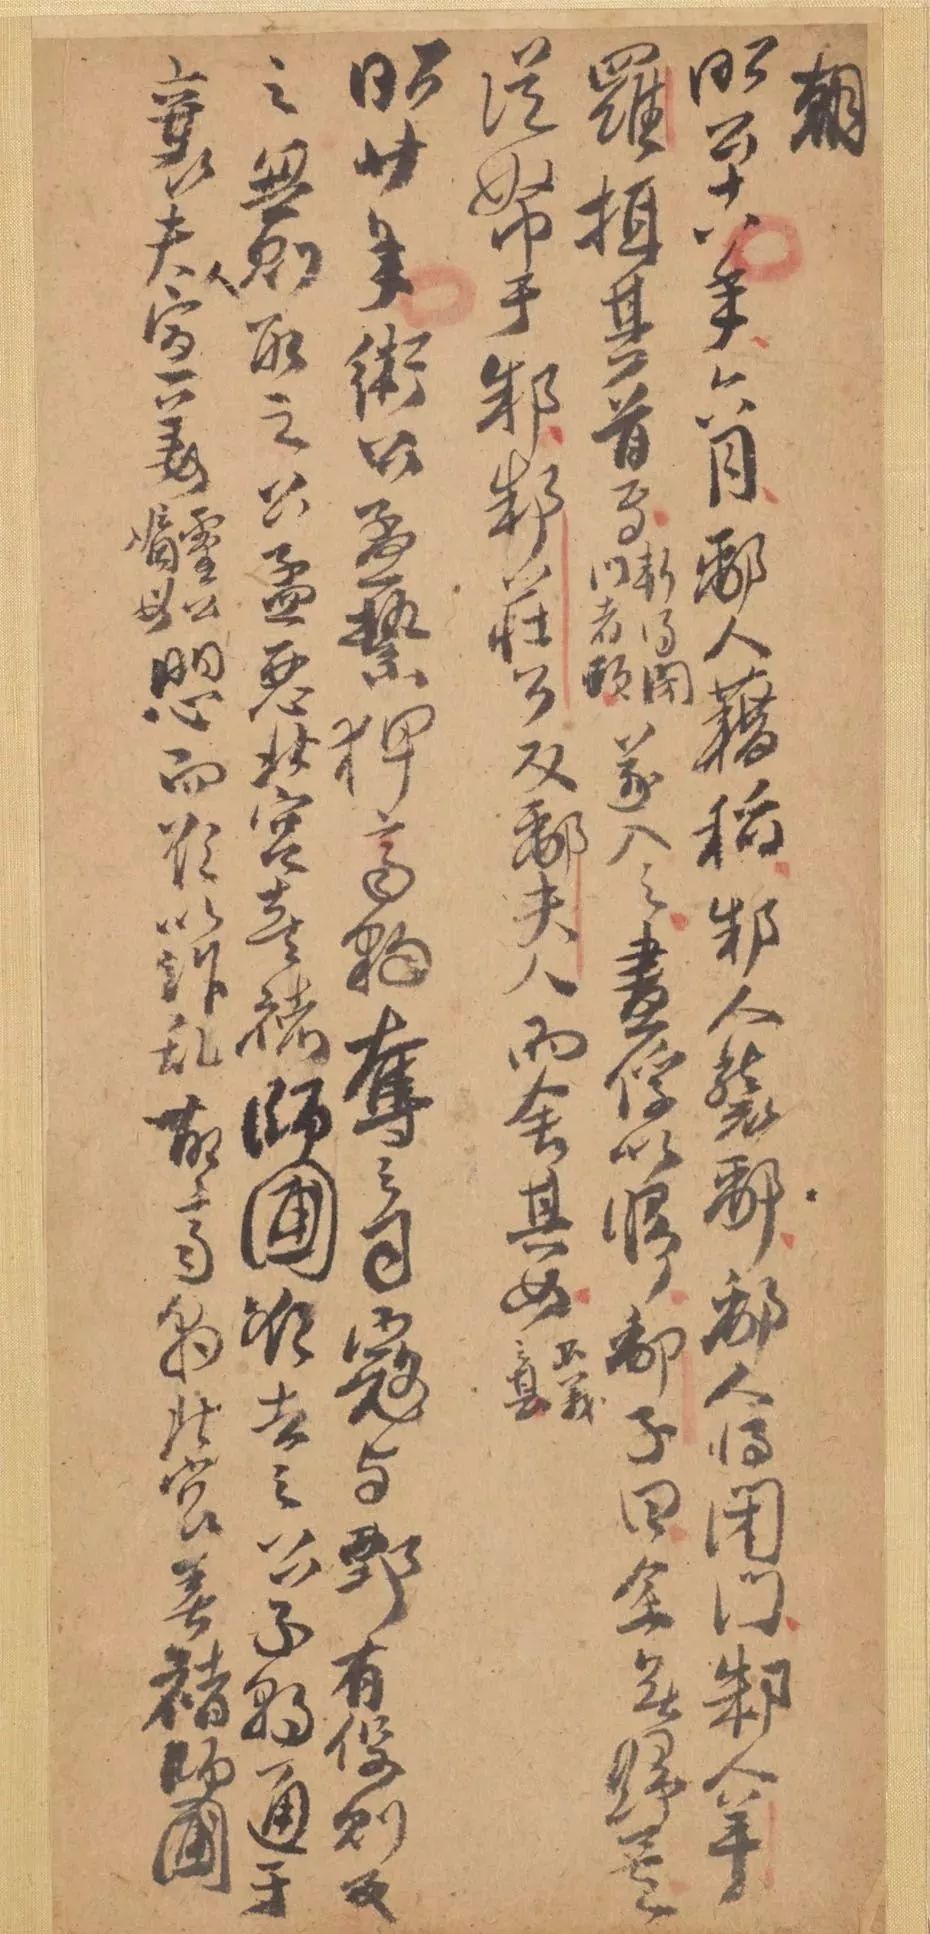 朝
昭公十八年六月鄅人藉稻邾人襲鄅鄅人將閉門邾人羊
羅攝其首焉斬得閉門者頭遂入之盡俘以歸鄅子曰余無歸矣
從帑于邾邾莊公反鄅夫人而舍其女不義
昭廿年衛公孟縶狎齊豹奪之司寇與鄄有役則反
之無則取之公孟惡北宮喜褚師圃欲去之公子朝通于
襄夫人宣姜靈公嫡母愳而欲以作乱故齊豹北宮喜褚師圃